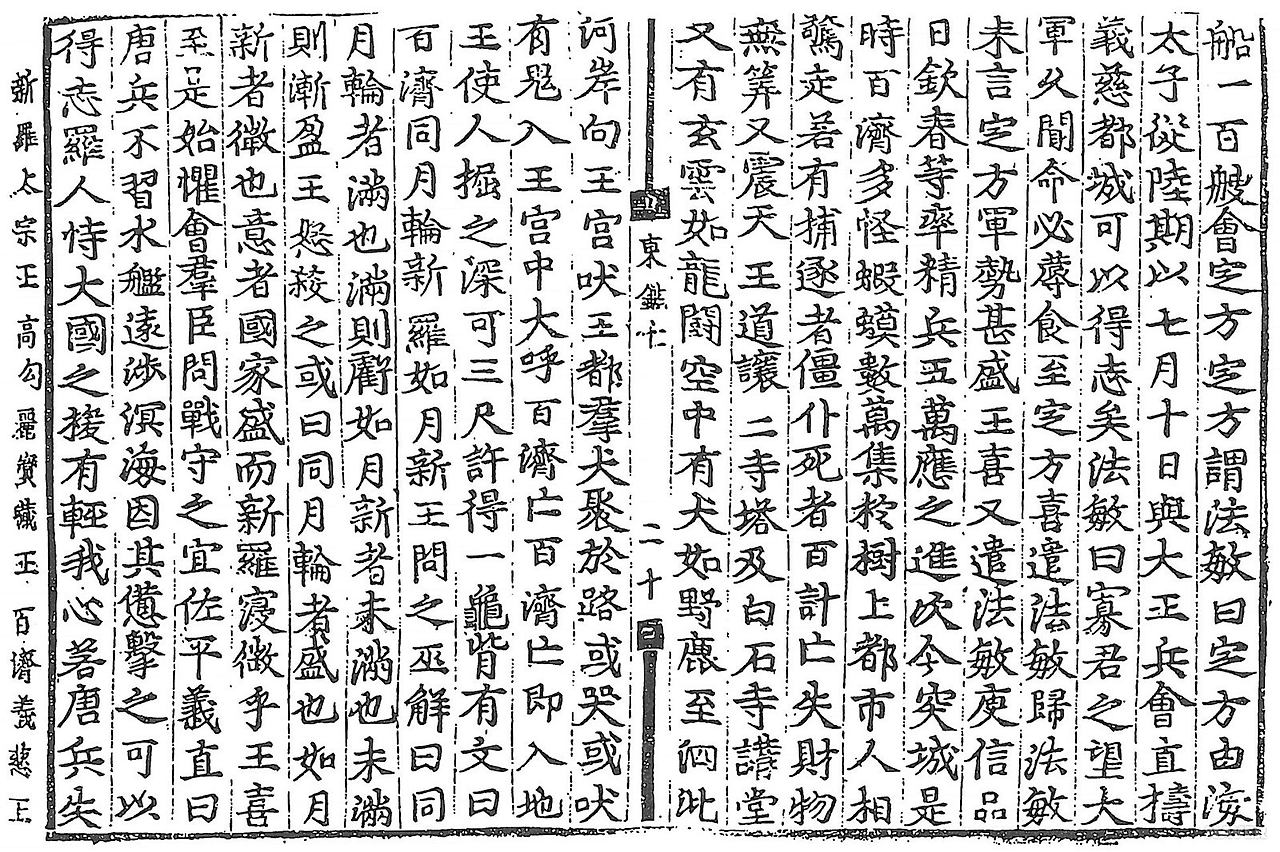 船一百艘會定方定方謂法敏曰定方由海
太子從陸期以七月十日與大王兵會直擣
義慈都城可以得志矣法敏曰寡君之望大
軍久聞命必蓐食至定方喜遣法敏歸法敏
来言定方軍勢甚盛王喜又遣法敏庾信品
日欽春等率精兵五萬應之進次今突城是
時百濟多怪蝦蟆數萬集於樹上都市人相
驚走若有捕逐者僵仆死者百計亡失財物
無筭又震天王道讓二寺塔及白石寺講堂
又有玄雲如龍鬪空中有犬如野鹿至泗沘
東鑑
二十
河岸向王宮吠王都羣犬聚於路或哭或吠
有鬼入王宮中大呼百濟亡百濟亡即入地
王使人掘之深可三尺許得一龜背有文曰
百濟同月輪新羅如月新王問之巫解曰同
月輪者滿也滿則虧如月新者未滿也未滿
則漸盈王怒殺之或曰同月輪者盛也如月
新者微也意者國家盛而新羅寖微乎王喜
至是始懼會羣臣問戰守之宜佐平義直曰
唐兵不習水艦遠涉溟海因其憊擊之可以
得志羅人恃大國之援有輕我心若唐兵失
新羅太宗王 高勾麗寶臧王 百濟義慈王